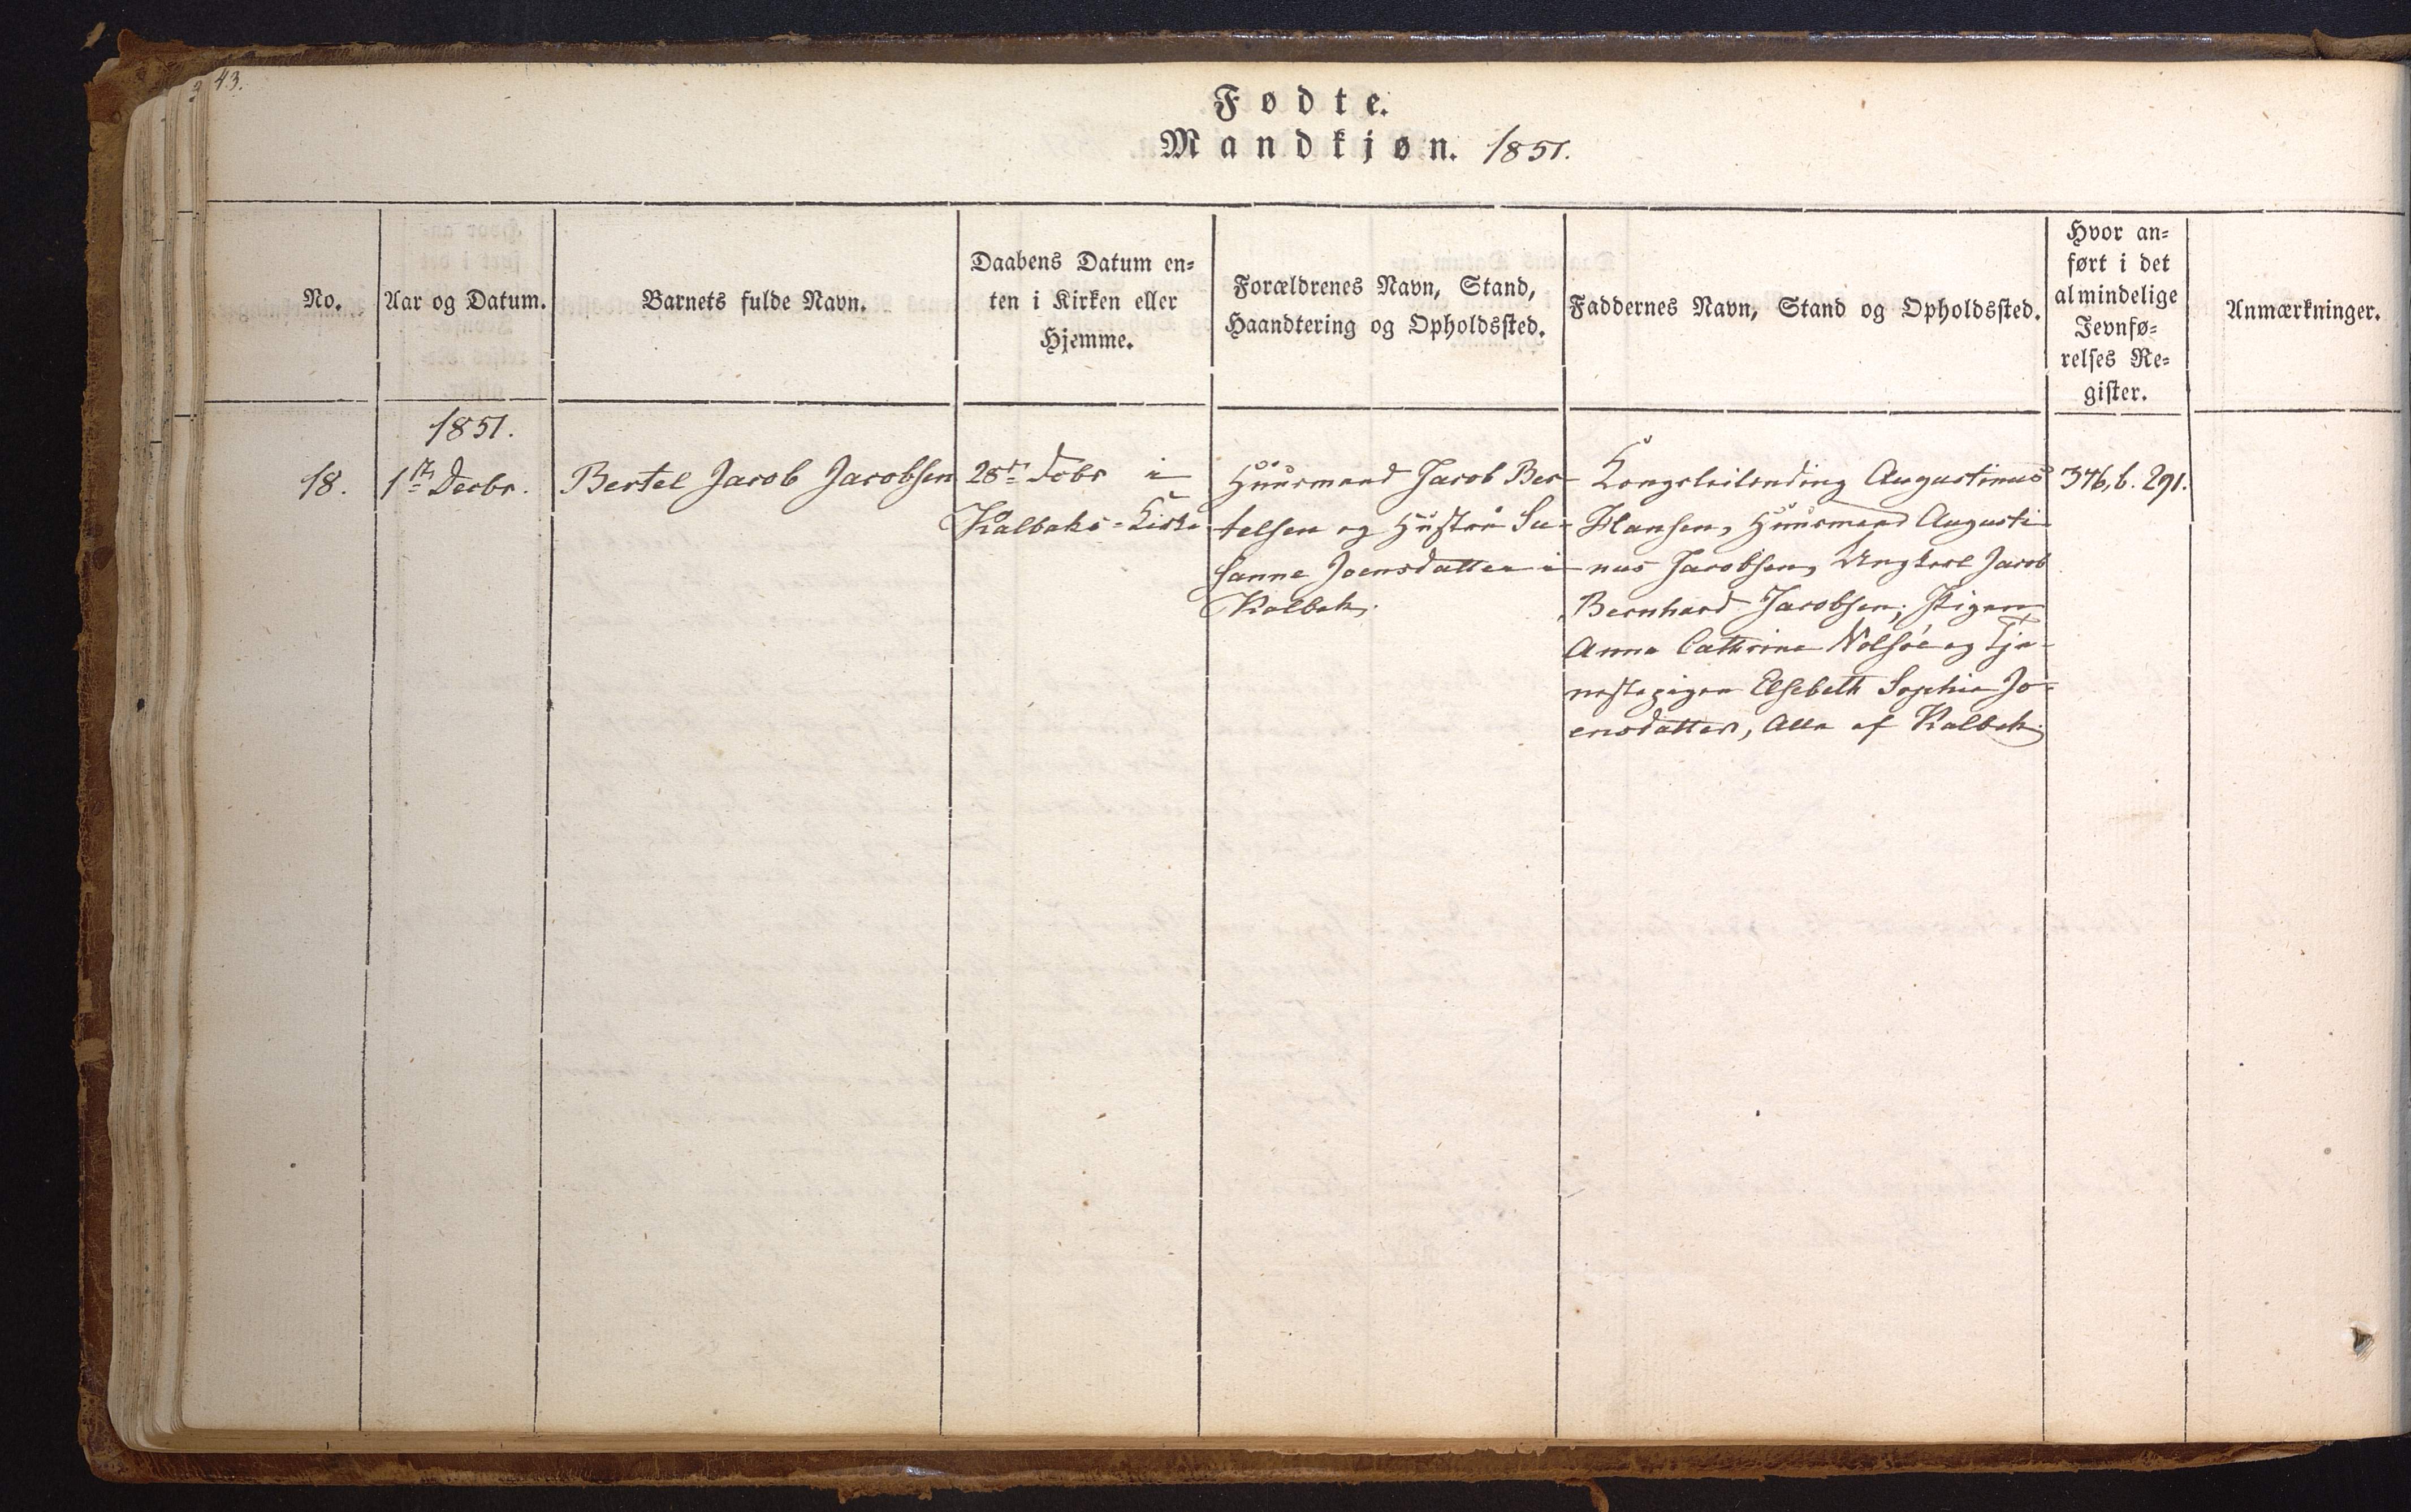 43.
Fødte.
Mandkjøn. 1851.
No.
Aar og Datum.
Barnets fulde Navn.
Daabens Datum en=
ten i Kirken eller
Hjemme.
Forældrenes Navn, Stand,
Haandtering og Opholdssted.
Faddernes Navn, Stand og Opholdssted.
Hvor an=
ført i det
almindelige
Jevnfø=
relses Re=
gister.
Anmærkninger.
1851.
18.
1ste Decbr.
Bertel Jacob Jacobsen
28de Dcbr i
Kalbaks=Kirke
Huusmand Jacob Ber-
telsen og Hustru Su-
sanne Joensdatter i
Kalbak.
Kongsleilending Augustinus
Hansen, Huusmand Augusti
nus Jacobsen, Ungkarl Jacob
Bernhard Jacobsen; Pigen
Anna Cathrine Nolsøe og Tje-
nestepigen Elsebeth Sophie Jo-
ensdatter, Alle af Kalbak.
376, b. 291.